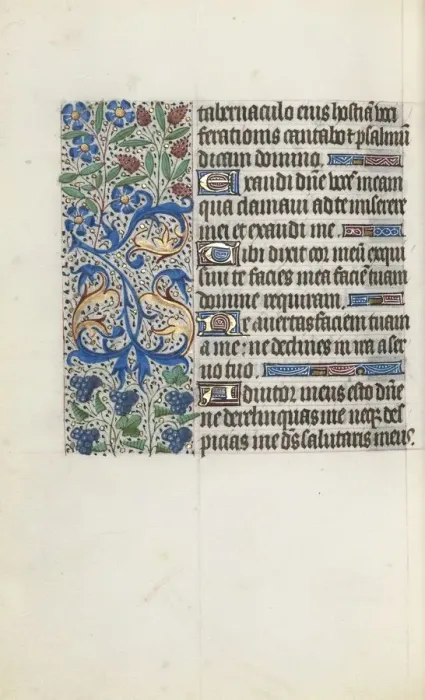 tabernaculo eius hostiā voci
ferationis cantabo ⁊ psalmū
dicam domino.
Exaudi dñe vocē meam
qua clamaui ad te miserere
mei et exaudi me.
Tibi dixit cor meū exqui
siui te facies mea faciē tuam
domine requiram.
Ne auertas faciem tuam
a me: ne declines in ira a ser
uo tuo.
Adiutor meus esto dñe
ne derelinquas me neqʒ des
picias me ds̄ salutaris meus.